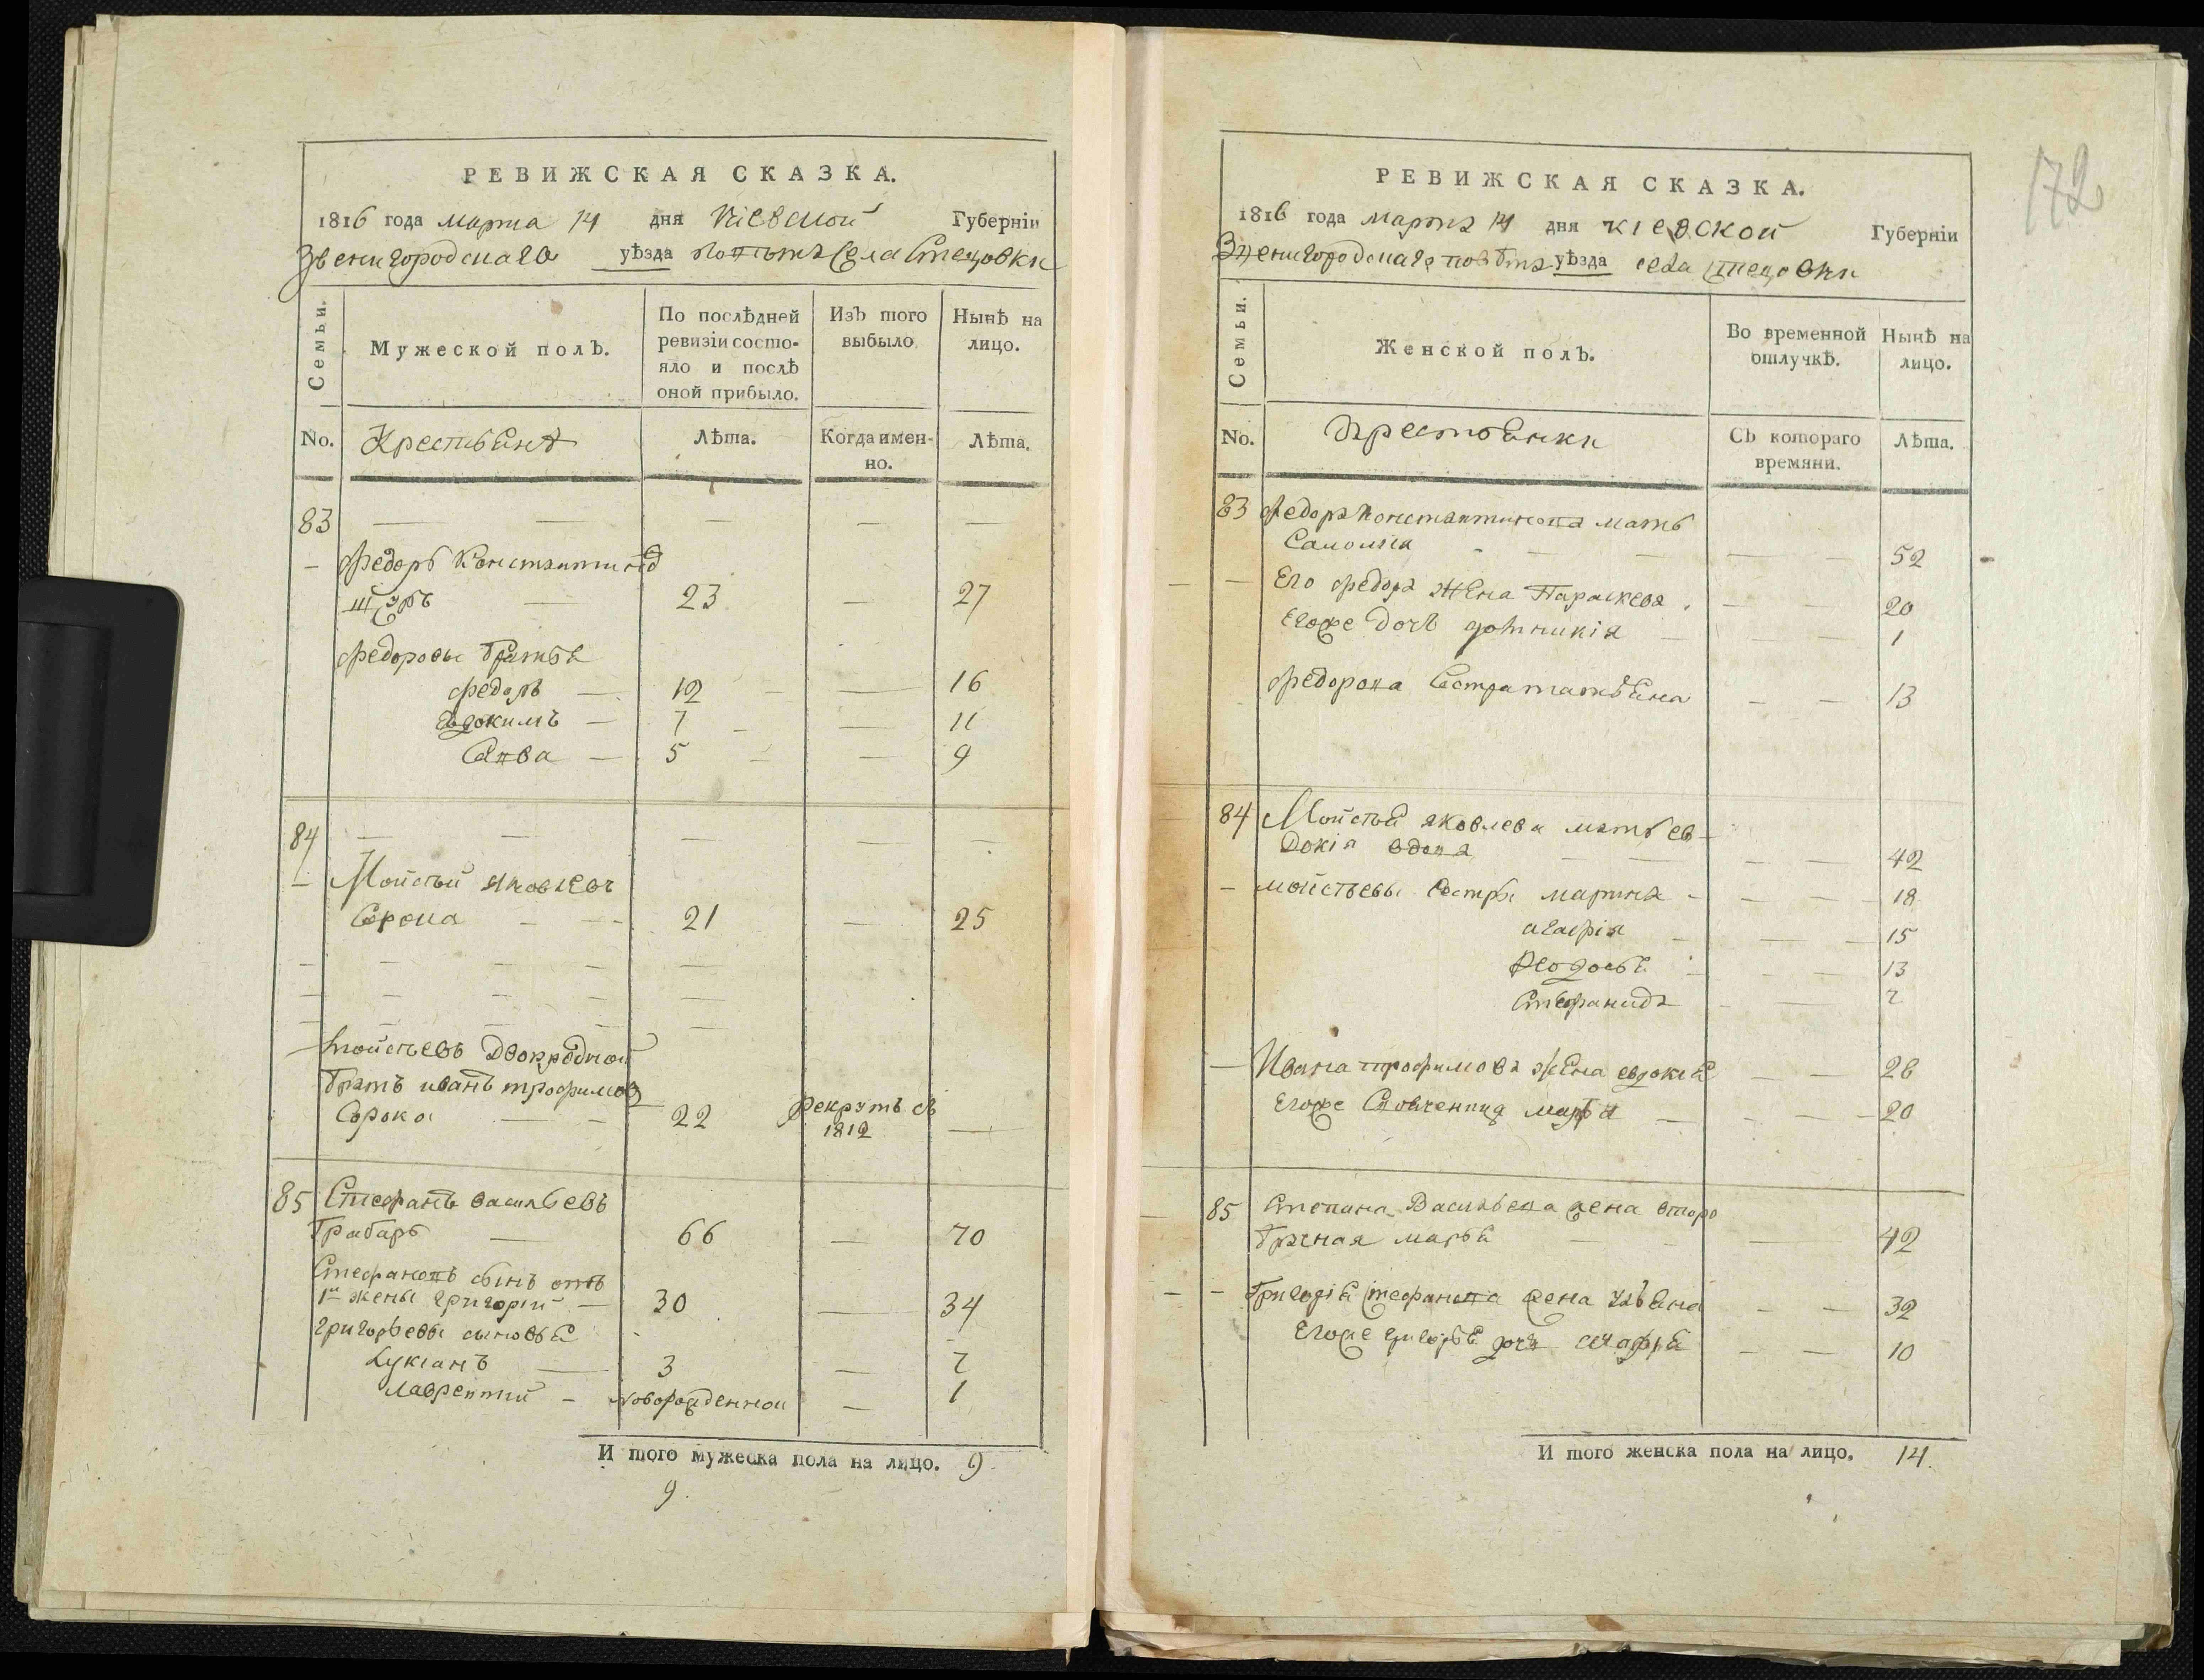 РЕВИЖСКАЯ СКАЗКА.
1816 года марта 14 дня Кіевской Губерніи
Звенигородскаго уѣзда повѣта Села Стецовки
Семьи.
Мужеской полЪ.
По послѣдней ревизіи состояло и послѣ оной прибыло.
ИзЪ того выбыло.
Нынѣ на лицо.
No. Крестьяне
Лѣта.
Когда именно.
Лѣта.
83
Федоръ Константиновъ
23 27
Федоровы братья
Федоръ 12 16
Евдокимъ 7 11
Савва 5 9
84
Мойсей Яковлевъ
Сорока 21 25
Мойсеевъ Двоюродной
братъ иванъ трофимовъ
Сорока 22 рекрутъ въ 1812
85 Стефанъ васильевъ
Грабарь 66 70
Стефановъ сынъ отъ
1й жены григорій 30 34
григорьевы сыновья
Лукіанъ 3 7
Лаврентій новорожденной 1
И того мужеска пола на лицо. 9
9.
172
РЕВИЖСКАЯ СКАЗКА.
1816 года марта 14 дня Кіевской Губерніи
Звенигородскаго повѣта уѣзда села Стецовки
Семьи.
Женской полЪ.
Во временной отлучкѣ.
Нынѣ на лицо.
No. Крестьянки
СЪ котораго времяни.
Лѣта.
83 Федора Константинова мать
Саломія 52
Его федора жена Параскева 20
Егоже дочь 1
Федорова Сестра татьяна 13
84 Мойсея яковлева мать ев-
докія вдова 42
мойсеевы сестры марина 18
агафія 15
Феодосья 13
Стефанида 7
Ивана трофимова жена евдокія 28
Егоже марья 20
85 Степана Васильева жена второ
брачная марья 42
Григорія стефанова жена ульяна 32
Егоже григорья дочь агафія 10
И того женска пола на лицо. 14.